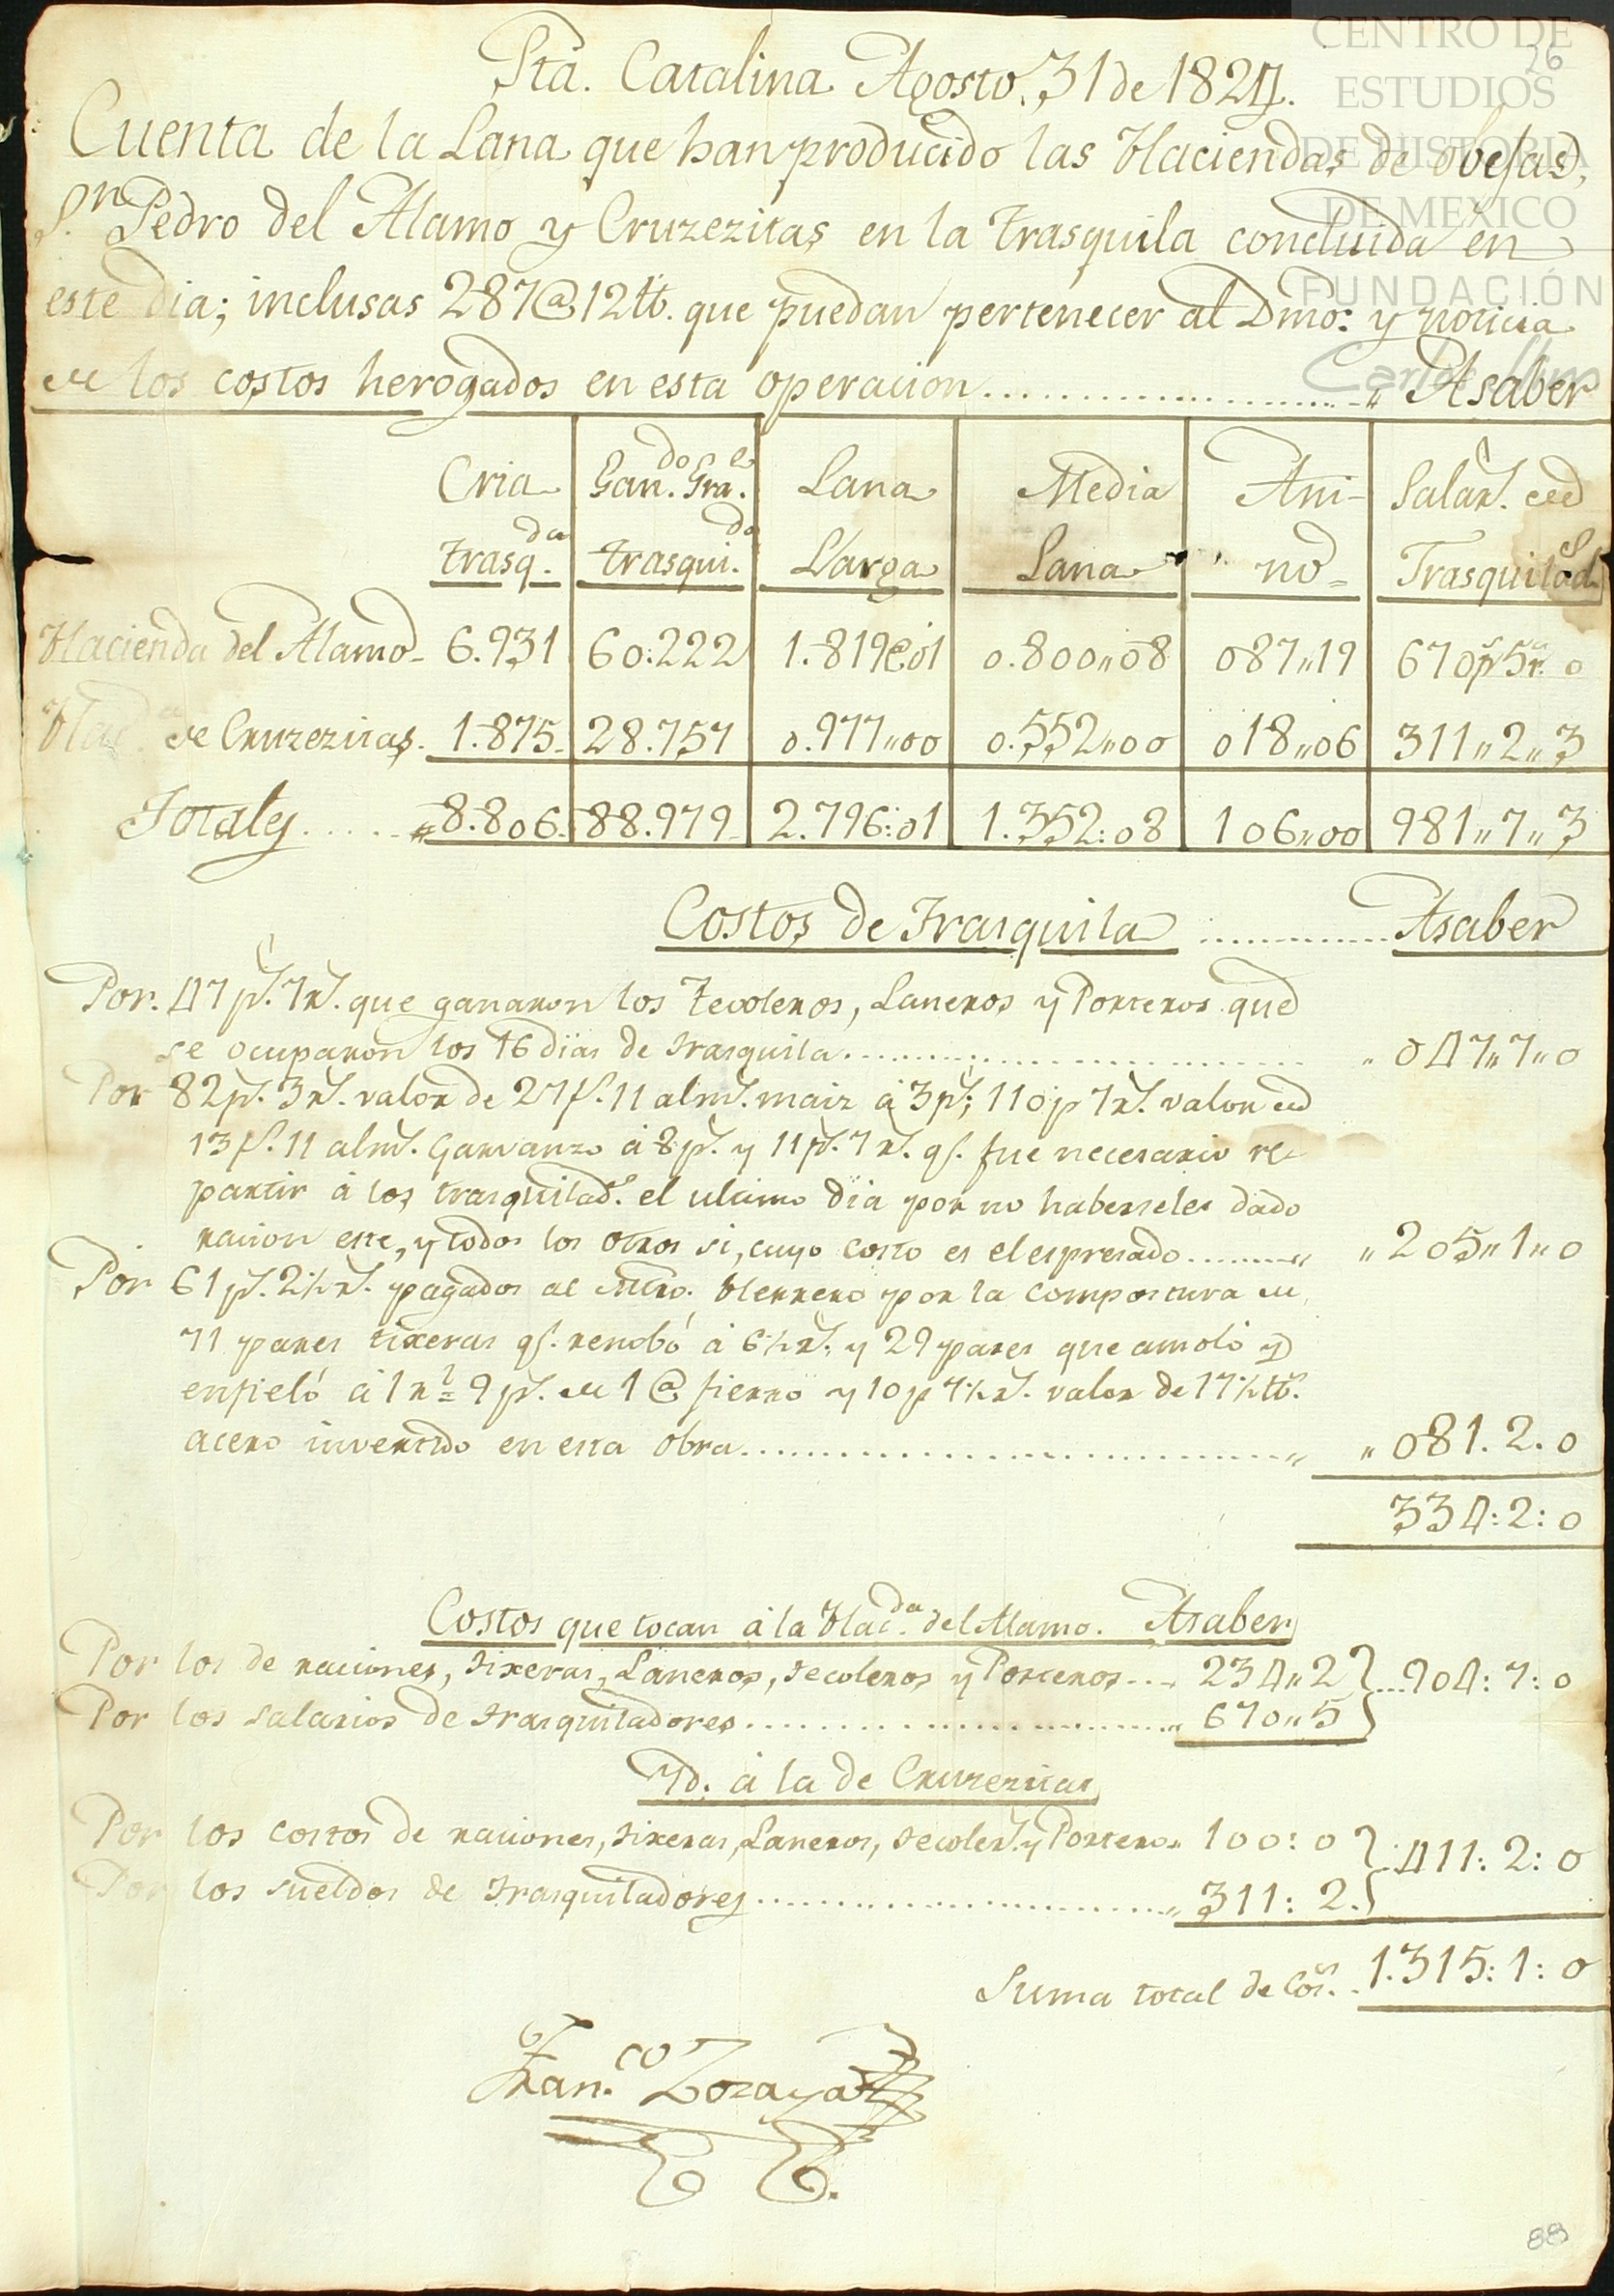 CENTRO DE
ESTUDIOS
DE HISTORIA
DE MEXICO
FUNDACIÓN
Carlos Slim
26
Sta. Catalina Agosto 31 de 1824.
Cuenta de la Lana que han producido las Haciendas de ovejas,
S.n Pedro del Alamo y Cruzezitas en la trasquila concluida en
este dia; inclusas 287@12 lb. que puedan pertenecer al Dmo: y noticia
de los costos herogados en esta operacion.......................... " Asaber
Cria trasq.da | Gan.do Gra.e trasqui.do | Lana Larga | Media Lana | Ani-no= | Salar.s de Trasquilad.s
Hacienda del Alamo- 6.931 | 60.222 | 1.819@01 | 0.800"08 | 087"19 | 670p.s5r.s 0
Hac.da de Cruzezitas. 1.875- | 28.757 | 0.977"00 | 0.552"00 | 018"06 | 311"2"3
Totales......" 8.806- | 88.979- | 2.796:01 | 1.352:08 | 106"00 | 981"7"3
Costos de Trasquila ............. Asaber
Por. 47 p.s 7 r.s que ganaron los Tecoleros, Laneros y Porteros que
se ocuparon los 16 dias de trasquila.............................. " 047"7"0
Por 82p.s 3r.s valor de 27f.s 11 alm.s maiz á 3p.s; 110p 7r.s valor de
13f.s 11 alm.s Garvanzo á 8p.s y 11p.s 7r.s q.e fue necesario re-
partir á los trasquilad.s el ultimo dia por no haberseles dado
racion este, y todos los otros si, cuyo costo es el espresado........" " 205"1"0
Por 61p.s 2½r.s pagados al Mtro. Herrero por la compostura de
71 pares tixeras q.e renobó á 6½r.s y 29 pares que amoló y
enfieló á 1 r.l= 9 p.s de 1@ fierro y 10p 7½r.s valor de 17½lb.s
acero invertido en esta obra...................................." " 081.2.0
334:2:0
Costos que tocan á la Hac.da del Alamo. Asaber
Por los de raciones, tixeras, Laneros, tecoleros y Porteros.... 234"2 }...904:7:0
Por los salarios de trasquiladores............................" 670"5
Yd. á la de Cruzezitas
Por los costos de raciones, tixeras, Laneros, tecoler.s y Porteros" 100:0 }..411:2:0
Por los sueldos de trasquiladores............................" 311:2.
Suma total de Cos.s.. 1.315:1:0
Fran.co Zozaya
88